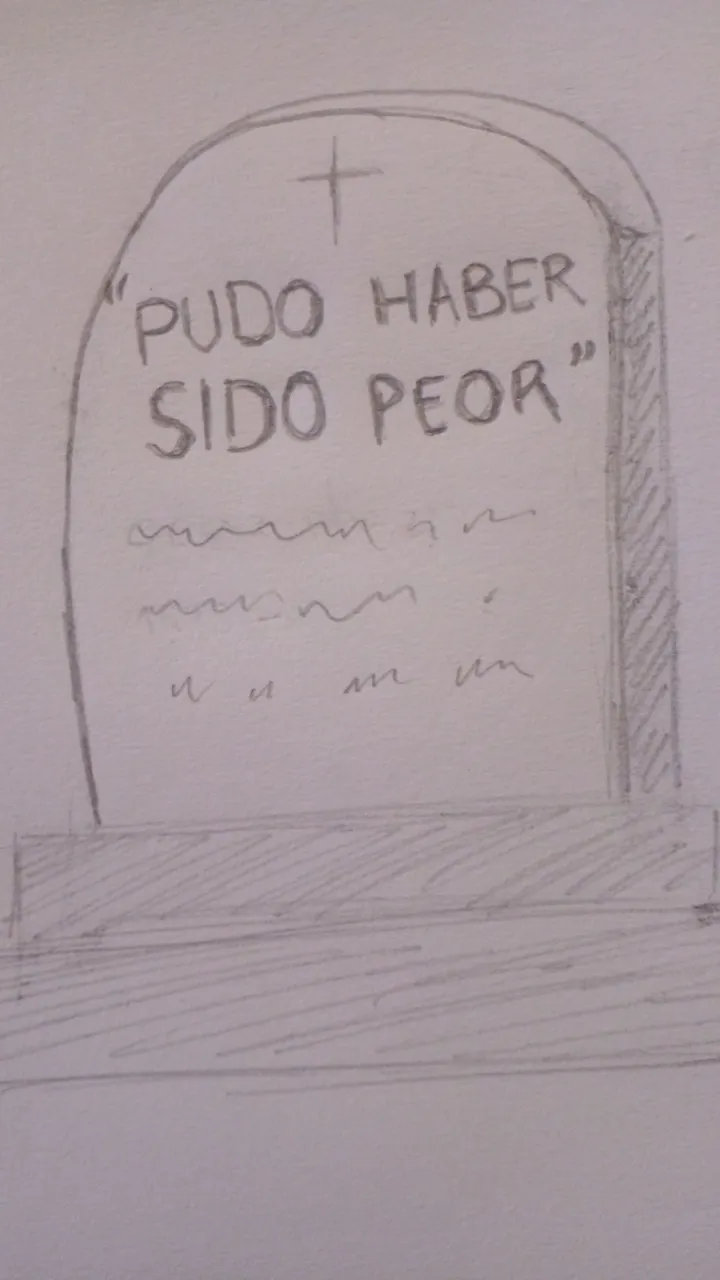 “PUDO HABER
SIDO PEOR”